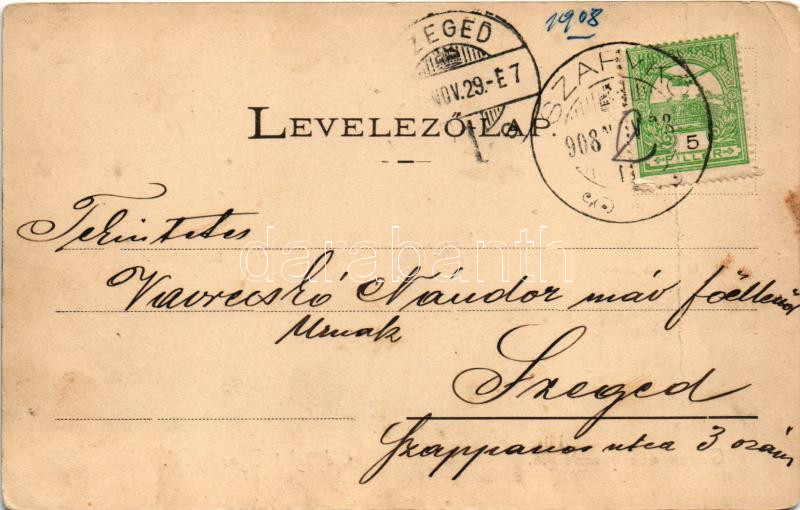 1908
SZEGED
NOV.29.-E7
MAGYAR KIR. POSTA
5
FILLÉR
908
LEVELEZŐ-LAP.
Tekintetes
Vavrecskó Nándor máv főellenőr
Urnak
Szeged
Szappanos utca 3 szám
darabanth